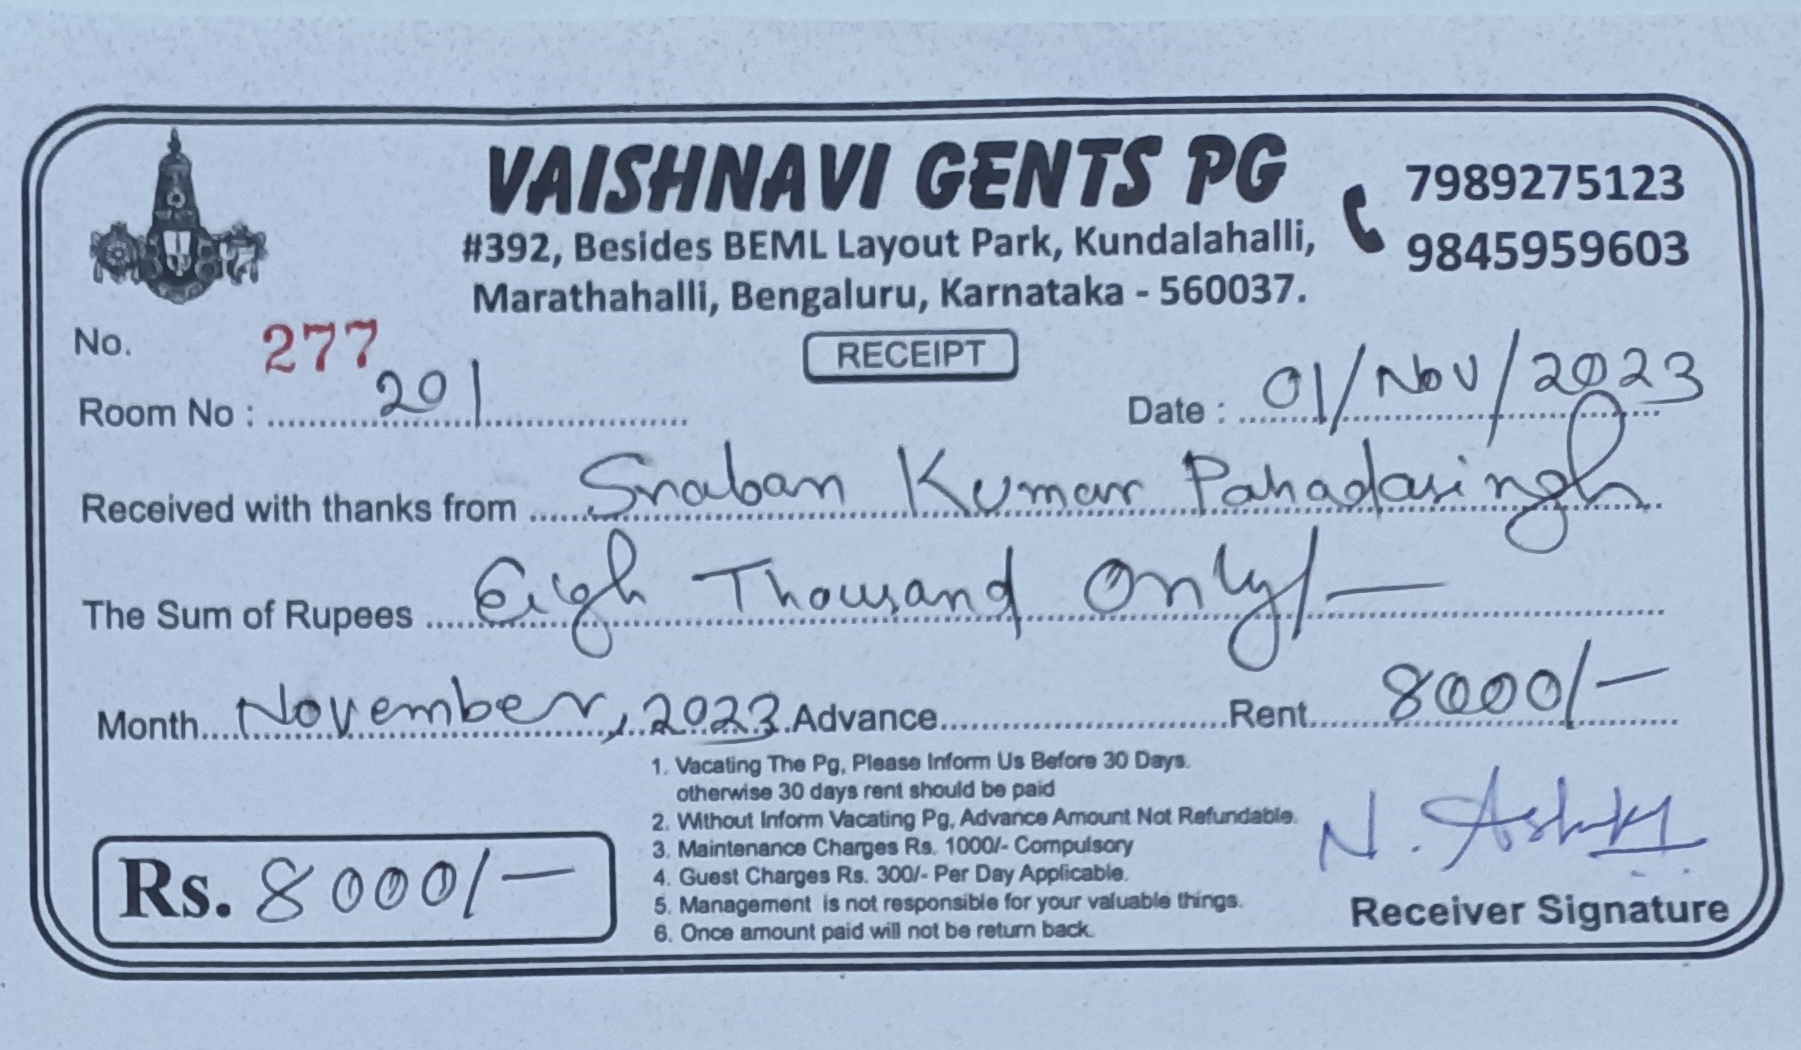 VAISHNAVI GENTS PG
7989275123
#392, Besides BEML Layout Park, Kundalahalli,
9845959603
Marathahalli, Bengaluru, Karnataka - 560037.
No. 277
RECEIPT
Room No : 201 Date : 01/Nov/2023
Received with thanks from Sraban Kumar Pahadasingh
The Sum of Rupees Eigh Thousand Only/-
Month November, 2023 Advance Rent 8000/-
1. Vacating The Pg, Please Inform Us Before 30 Days.
otherwise 30 days rent should be paid
2. Without Inform Vacating Pg, Advance Amount Not Refundable.
3. Maintenance Charges Rs. 1000/- Compulsory
4. Guest Charges Rs. 300/- Per Day Applicable.
5. Management is not responsible for your valuable things.
6. Once amount paid will not be return back.
Rs. 8000/-
N.
Receiver Signature